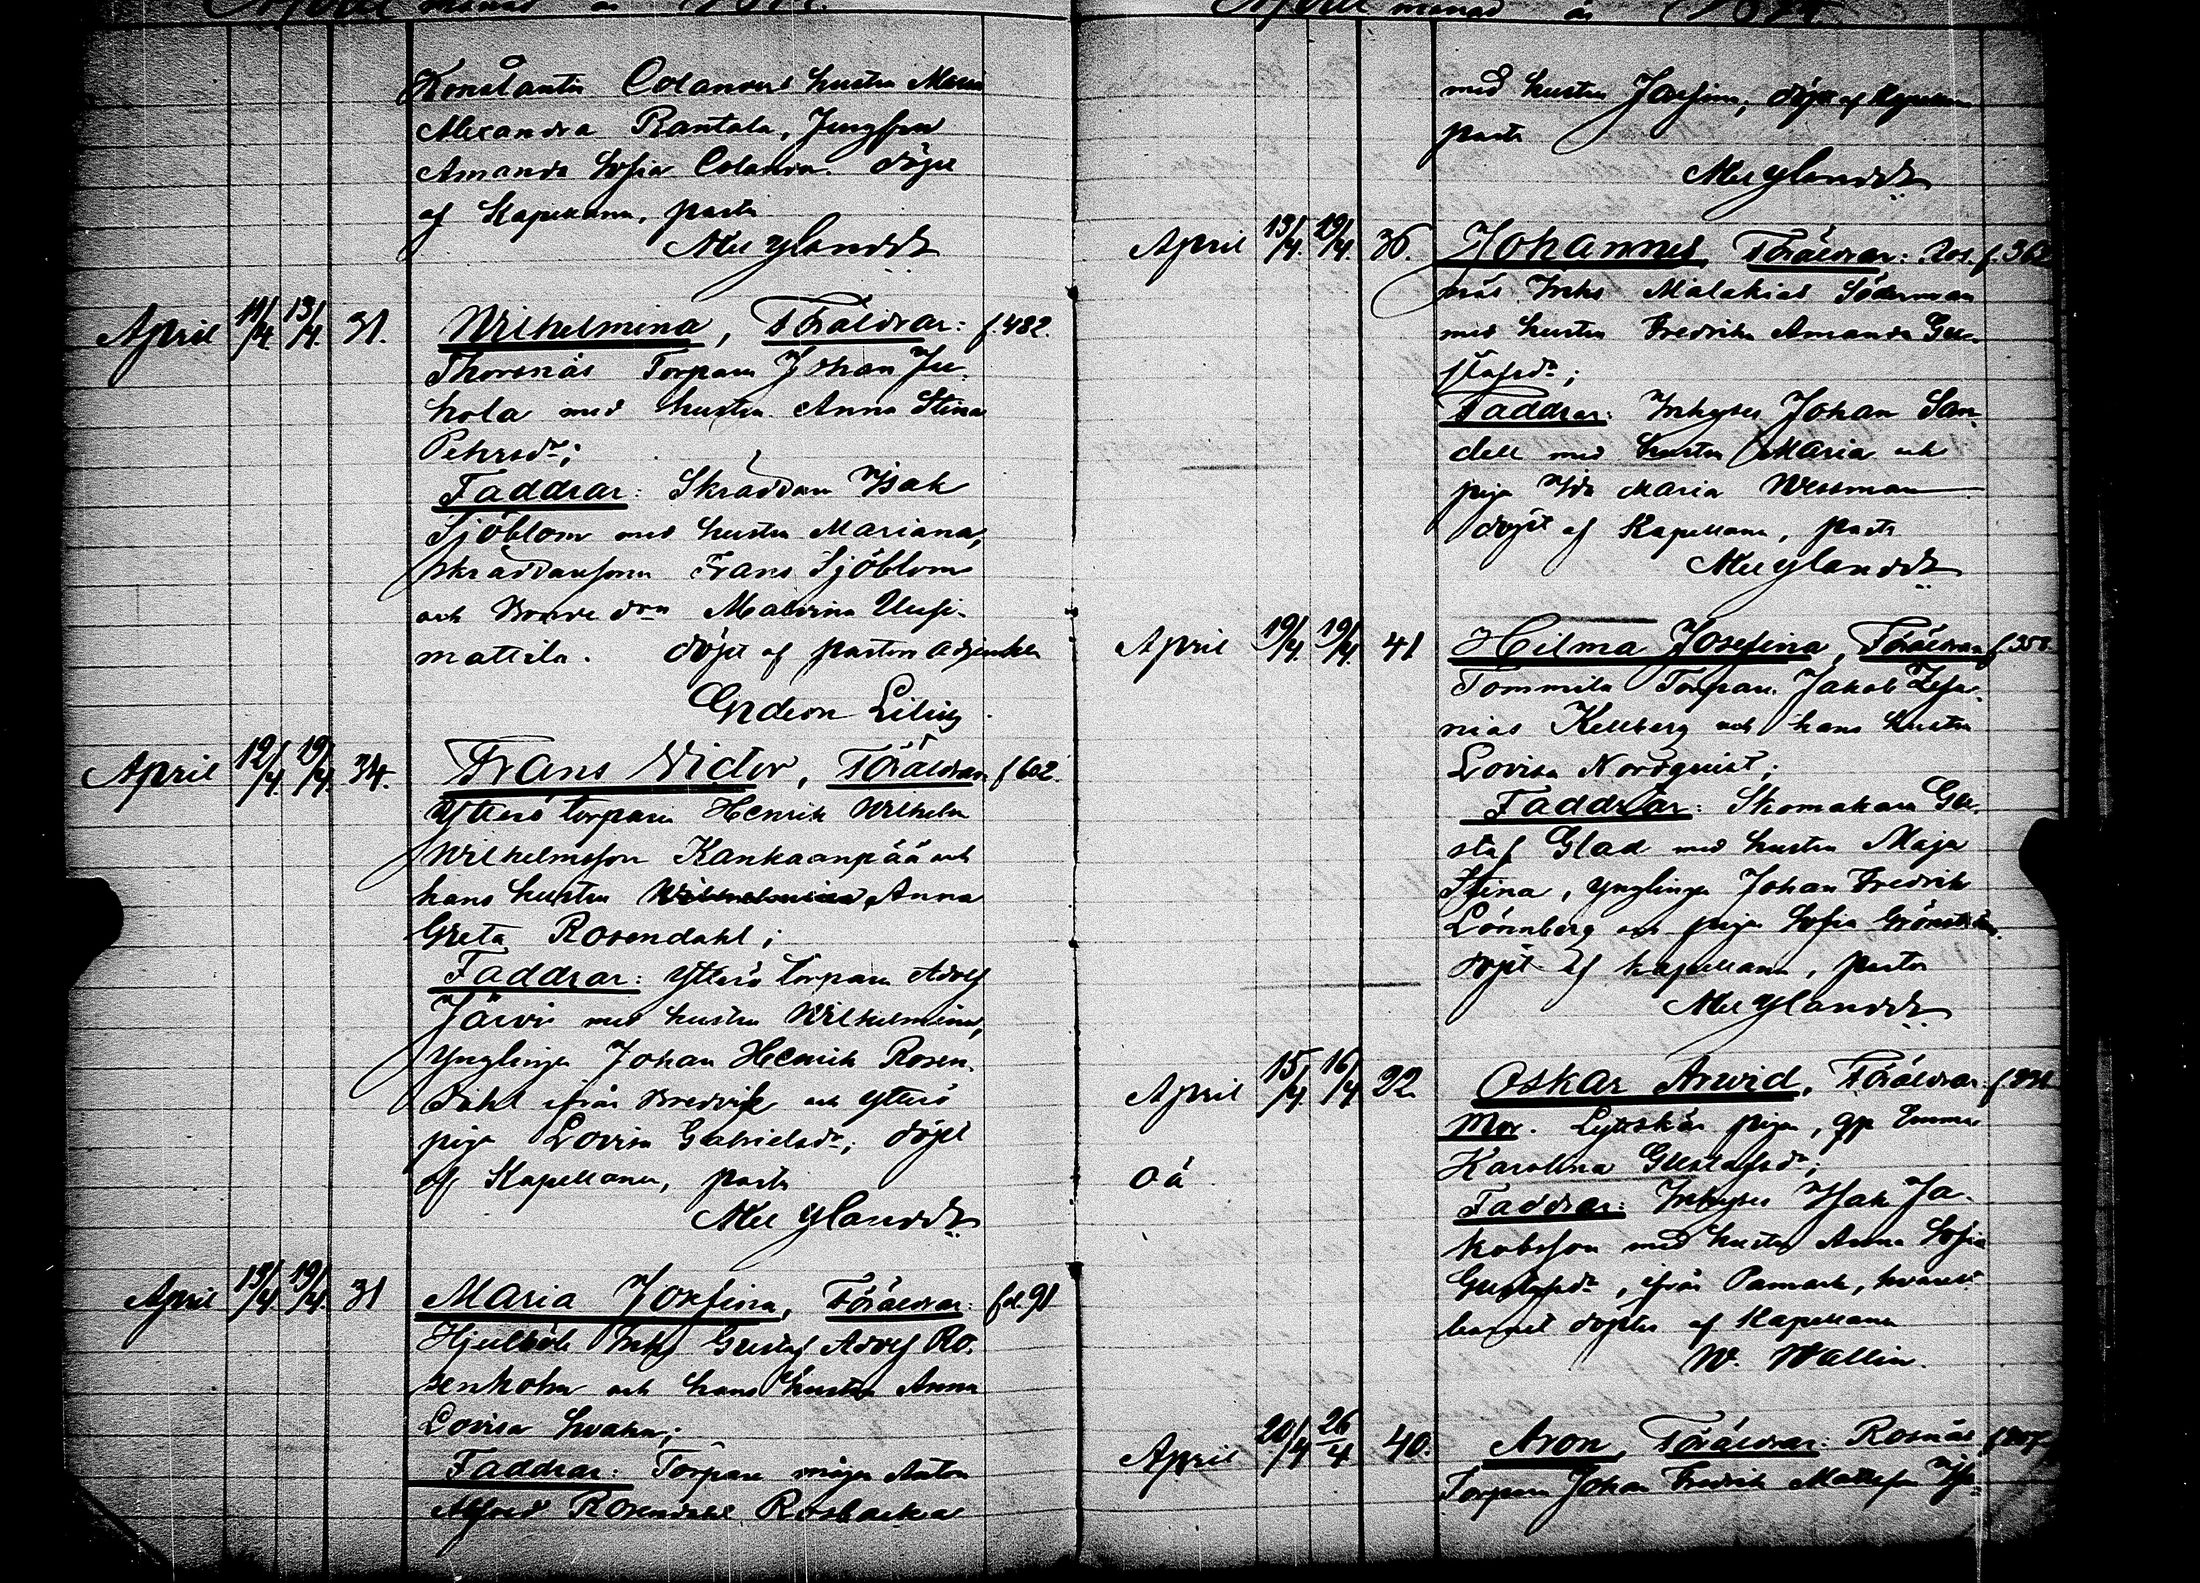 April månad år
Konstantin Colanders hustru Maria
Alexandra Rantala, Jungfrun
Amanda Sofia Colander. döpt
af Kapellanen, pastor
Nylandd
April 11/4. 13/4. 31. Wilhelmina, Föräldrar: f. 482.
Thorsnäs Torparen Johan Ju-
hola med hustru Anna Stina
Pehrsdr;
Faddrar: Skräddaren Isak
Sjöblom med hustru Mariana,
skräddaresonen Frans Sjöblom
och Bonde don Malvina Uusi-
mattila. döpt af pastors adjunkten
Gideon Lilius
April 12/4. 19/4. 34. Frans Victor, Föräldrar f 602.
Ytterö torparen Henrik Wilhelm
Wilhelmsson Kankaanpää och
hans hustru Wilhelmina Anna
Greta Rosendahl;
Faddrar: Ytterö torparen Adolf
Järvi med hustru Wilhelmina,
Ynglingen Johan Henrik Rosen-
dahl ifrån Bredvik och Ytterö
pigan Lovisa Gabrielsdr; döpt
af Kapellanen, pastor
Nylandd
April 13/4 19/4. 31 Maria Josefina, Föräldrar: fol. 91
Hjulböle Inhs Gustaf Adolf Ro-
senholm och hans hustru Anna
Lovisa Svahn;
Faddrar: Torpare mågen Anton
Alfred Rosendahl Rosbacka
April månad år
med hustru Josefina, döpt af Kapellanen
pastor
Nylandd
April 13/4. 19/4. 36. Johannes, Föräldrar: Ros- f. 362
näs Inhs Malakias Söderman
med hustru Fredrika Amanda Gu-
stafsdr;
Faddrar: Inhyses Johan San-
dell med hustru Maria och
pigan Ida Maria Wessman
döpt af Kapellanen, pastor
Nylandd
April 19/4. 19/4. 41 Hilma Josefina, Föräldrar f. 358.
Tommila Torparen Jakob Zefa-
nias Kellberg och hans hustru
Lovisa Nordquist;
Faddrar: Skomakaren Gu-
staf Glad med hustru Maja
Stina, ynglingen Johan Fredrik
Lönnberg och pigan Sofia Grönström
döpt af kapellanen, pastor
Nylandd
April 15/4. 16/4 22 Oskar Arvid, Föräldrar
Mor. Lyttskär pigan, gp Emma
Karolina Gustafsdr;
oä
Faddrar: Inhyses Isak Ja-
kobsson med hustru Anna Sofia
Gustafsdr, ifrån Pamark, hvarest
barnet döptes af Kapellanen
W. Wallin.
April 20/4 26/4 40. Aron, Föräldrar: Rosnäs
Torparen Johan Fredrik Mattsson